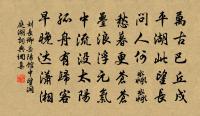 萬古巴丘戍
平湖此望長
問人何淼淼
愁暮更蒼蒼
疊浪浮元氣
中流没太陽
孤舟有歸客
早晚達瀟湘
劉長卿岳陽館中望洞
庭湖詞典網集